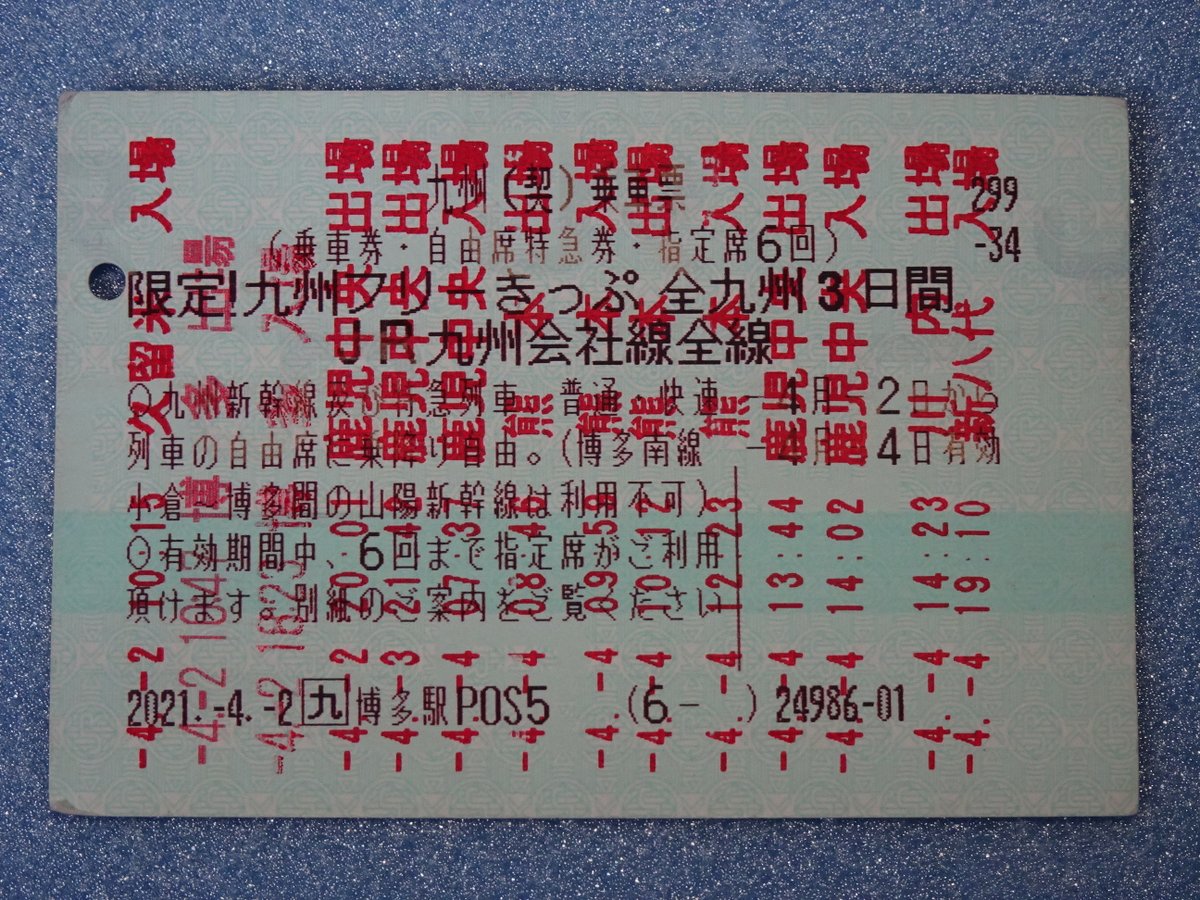 九州(契)乗車票
299
-34
(乗車券・自由席特急券・指定席6回)
限定!九州フリーきっぷ 全九州3日間
JR九州会社線全線
○九州新幹線及び特急列車・普通・快速
-4月-2日から
列車の自由席に乗降り自由。(博多南線
-4月-4日有効
小倉~博多間の山陽新幹線は利用不可)
○有効期間中、6回まで指定席がご利用
頂けます。別紙のご案内をご覧ください
2021.-4.-2 九 博多駅POS5 (6- ) 24986-01
-4.-2 10:15 久留米 入場
-4.-2 博多 出場
-4.-2 18:23 博多 入場
-4.-2 鹿児中央 出場
-4.-3 21:48 鹿児中央 出場
-4.-4 07:37 鹿児中央 入場
-4.-4 熊本 出場
-4.-4 09:59 熊本 入場
-4.-4 10:12 熊本 出場
-4.-4 12:23 熊本 入場
-4.-4 13:44 鹿児中央 出場
-4.-4 14:02 鹿児中央 入場
-4.-4 14:23 川内 出場
-4.-4 19:10 新八代 入場